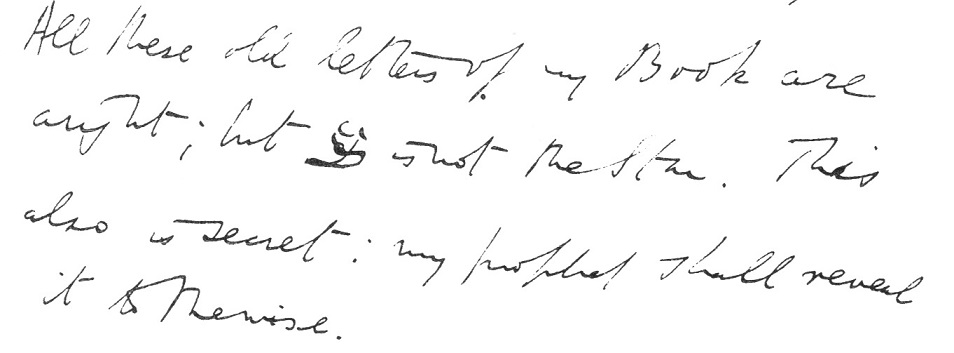 All these old letters of my Book are
aright; but צ is not the Star. This
also is secret: my prophet shall reveal
it to the wise.